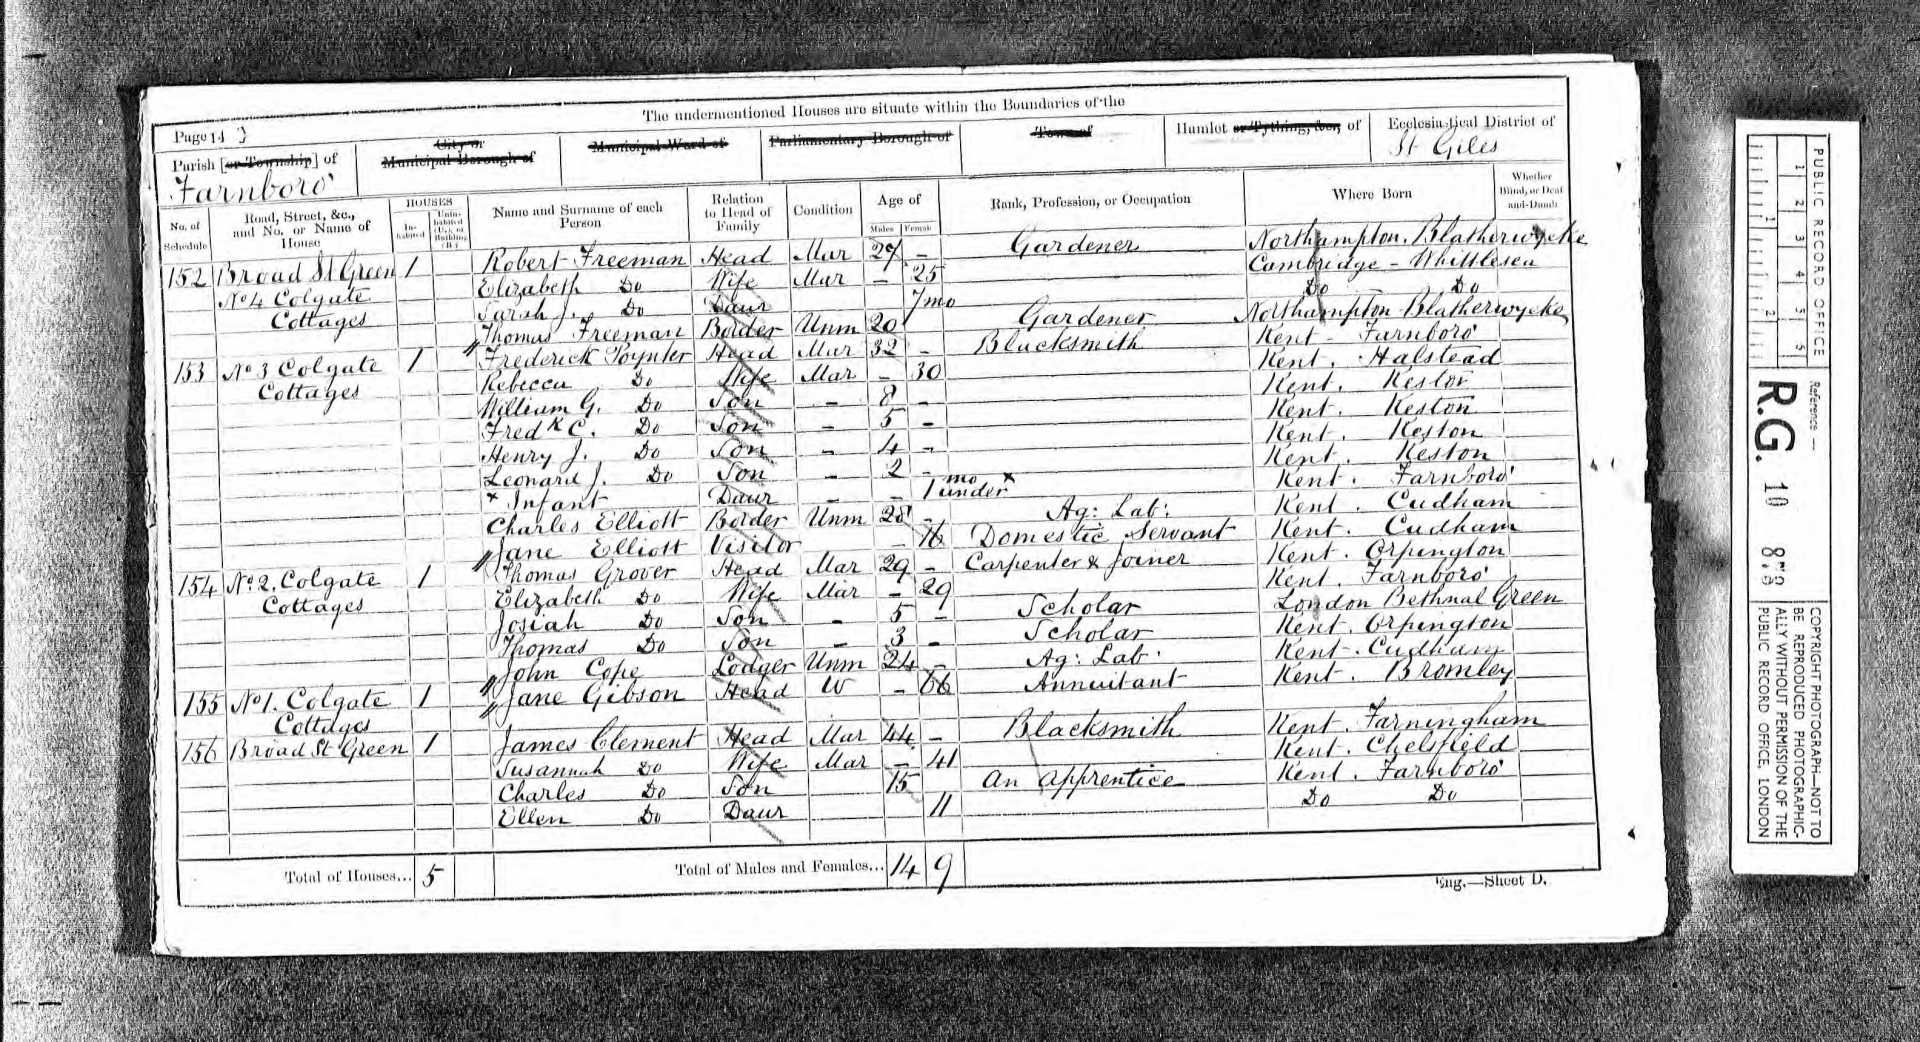 The undermentioned Houses are situate within the Boundaries of the
Page 14 3
Parish [or Township] of Farnboro'
City or Municipal Borough of
Municipal Ward of
Parliamentary Borough of
Town of
Hamlet or Tything, &c., of
Ecclesiastical District of St Giles
No. of Schedule
Road, Street, &c., and No. or Name of House
HOUSES
Inhabited
Uninhabited (U.), or Building (B.)
Name and Surname of each Person
Relation to Head of Family
Condition
Age of
Males
Females
Rank, Profession, or Occupation
Where Born
Whether Blind, or Deaf-and-Dumb
152 Broad St Green 1 Robert Freeman Head Mar 27 - Gardener Northampton. Blatherwycke
No 4 Colgate Elizabeth Do Wife Mar - 25 Cambridge - Whittlesea
Cottages Sarah J. Do Daur 7mo Do Do
Thomas Freeman Border Unm 20 Gardener Northampton Blatherwycke
153 No 3 Colgate 1 Frederick Poynter Head Mar 32 - Blacksmith Kent - Farnboro'
Cottages Rebecca Do Wife Mar - 30 Kent. Halstead
William G. Do Son - 8 - Kent. Keston
Fredk C. Do Son - 5 - Kent. Keston
Henry J. Do Son - 4 - Kent. Keston
Leonard J. Do Son - 2 - Kent. Keston
x Infant Daur - - 1 mo under x Kent. Farnboro'
Charles Elliott Border Unm 28 - Ag: Lab: Kent. Cudham
Jane Elliott Visitor - 16 Domestic Servant Kent. Cudham
154 No 2. Colgate 1 Thomas Grover Head Mar 29 - Carpenter & Joiner Kent. Orpington
Cottages Elizabeth Do Wife Mar - 29 Kent. Farnboro'
Josiah Do Son - 5 - Scholar London Bethnal Green
Thomas Do Son - 3 - Scholar Kent. Orpington
John Cope Lodger Unm 24 - Ag: Lab: Kent. Cudham
155 No 1. Colgate 1 Jane Gibson Head W - 66 Annuitant Kent. Bromley
Cottages
156 Broad St Green 1 James Clement Head Mar 44 - Blacksmith Kent. Farningham
Susannah Do Wife Mar - 41 Kent. Chelsfield
Charles Do Son 15 An Apprentice Kent. Farnboro'
Ellen Do Daur 11 Do Do
Total of Houses... 5 Total of Males and Females... 14 9
Eng.—Sheet D.
PUBLIC RECORD OFFICE
1 2 3 4 5 5
1 2
Reference:—
R.G. 10 873
COPYRIGHT PHOTOGRAPH—NOT TO
BE REPRODUCED PHOTOGRAPHIC-
ALLY WITHOUT PERMISSION OF THE
PUBLIC RECORD OFFICE, LONDON